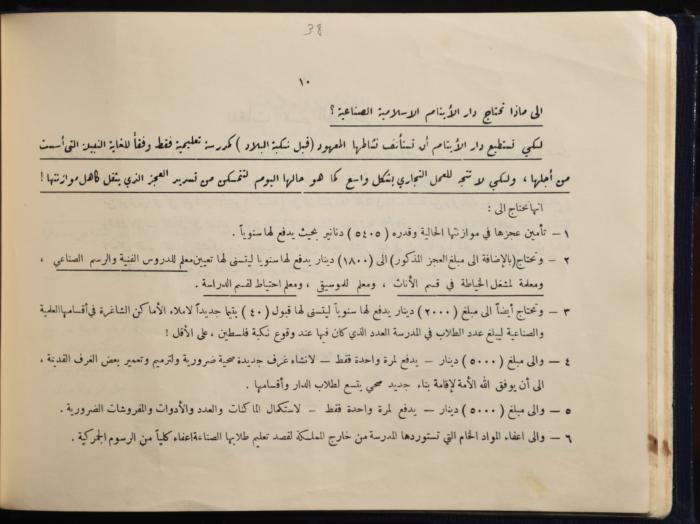 38
١٠
الى ماذا تحتاج دار الأيتام الاسلامية الصناعية ؟
لكي تستطيع دار الأيتام أن تستأنف نشاطها المعهود (قبل نكبة البلاد) كمدرسة تعليمية فقط وفقاً للغاية النبيلة التي أسست
من أجلها ، ولكي لا تتجه للعمل التجاري بشكل واسع كما هو حالها اليوم لتتمكن من تسديد العجز الذي يثقل كاهل موازنتها !
انها تحتاج الى :
١ – تأمين عجزها في موازنتها الحالية وقدره (٥٤٠٥) دنانير بحيث يدفع لها سنوياً .
٢ – وتحتاج (بالإضافة الى مبلغ العجز المذكور) الى (١٨٠٠) دينار يدفع لها سنويا ليتسنى لها تعيين معلم للدروس الفنية والرسم الصناعي ،
ومعلمة لمشغل الخياطة في قسم الأناث ، ومعلم للموسيقى ، ومعلم احتياط لقسم الدراسة .
٣ – وتحتاج أيضاً الى مبلغ (٢٠٠٠) دينار يدفع لها سنوياً ليتسنى لها قبول (٤٠) يتيما جديداً لاملاء الأماكن الشاغرة في أقسامها العلمية
والصناعية ليبلغ عدد الطلاب في المدرسة العدد الذي كان فيها عند وقوع نكبة فلسطين ، على الأقل !
٤ – والى مبلغ (٥٠٠٠) دينار – يدفع لمرة واحدة فقط – لانشاء غرف جديدة صحية ضرورية ولترميم وتعمير بعض الغرف القديمة ،
الى أن يوفق الله الأمة لإقامة بناء جديد صحي يتسع لطلاب الدار وأقسامها .
٥ – والى مبلغ (٥٠٠٠) دينار – يدفع لمرة واحدة فقط – لاستكمال الماكنات والعدد والأدوات والمفروشات الضرورية .
٦ – والى اعفاء المواد الخام التي تستوردها المدرسة من خارج المملكة لقصد تعليم طلابها الصناعة اعفاء كلياً من الرسوم الجمركية .